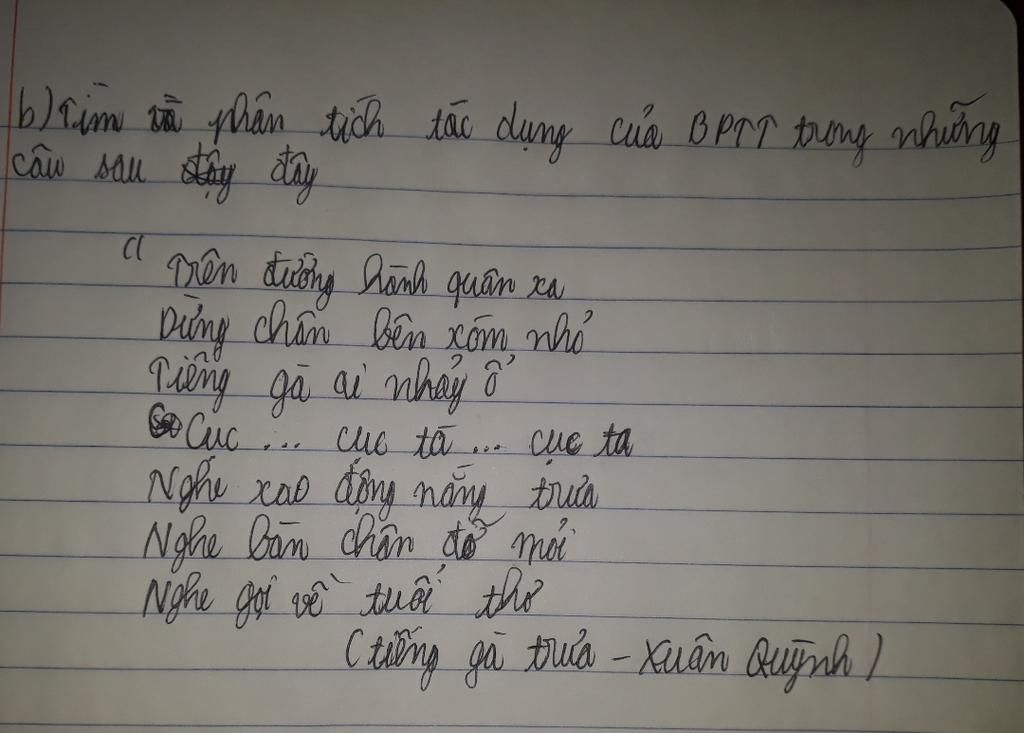 b) Tìm và phân tích tác dụng của BPTT trong những
câu sau đây
" Trên đường hành quân xa
Dừng chân bên xóm nhỏ
Tiếng gà ai nhảy ổ
Cục ... cục tá ... cục ta
Nghe xao động nắng trưa
Nghe bàn chân đỡ mỏi
Nghe gọi về tuổi thơ
(tiếng gà trưa - Xuân Quỳnh)